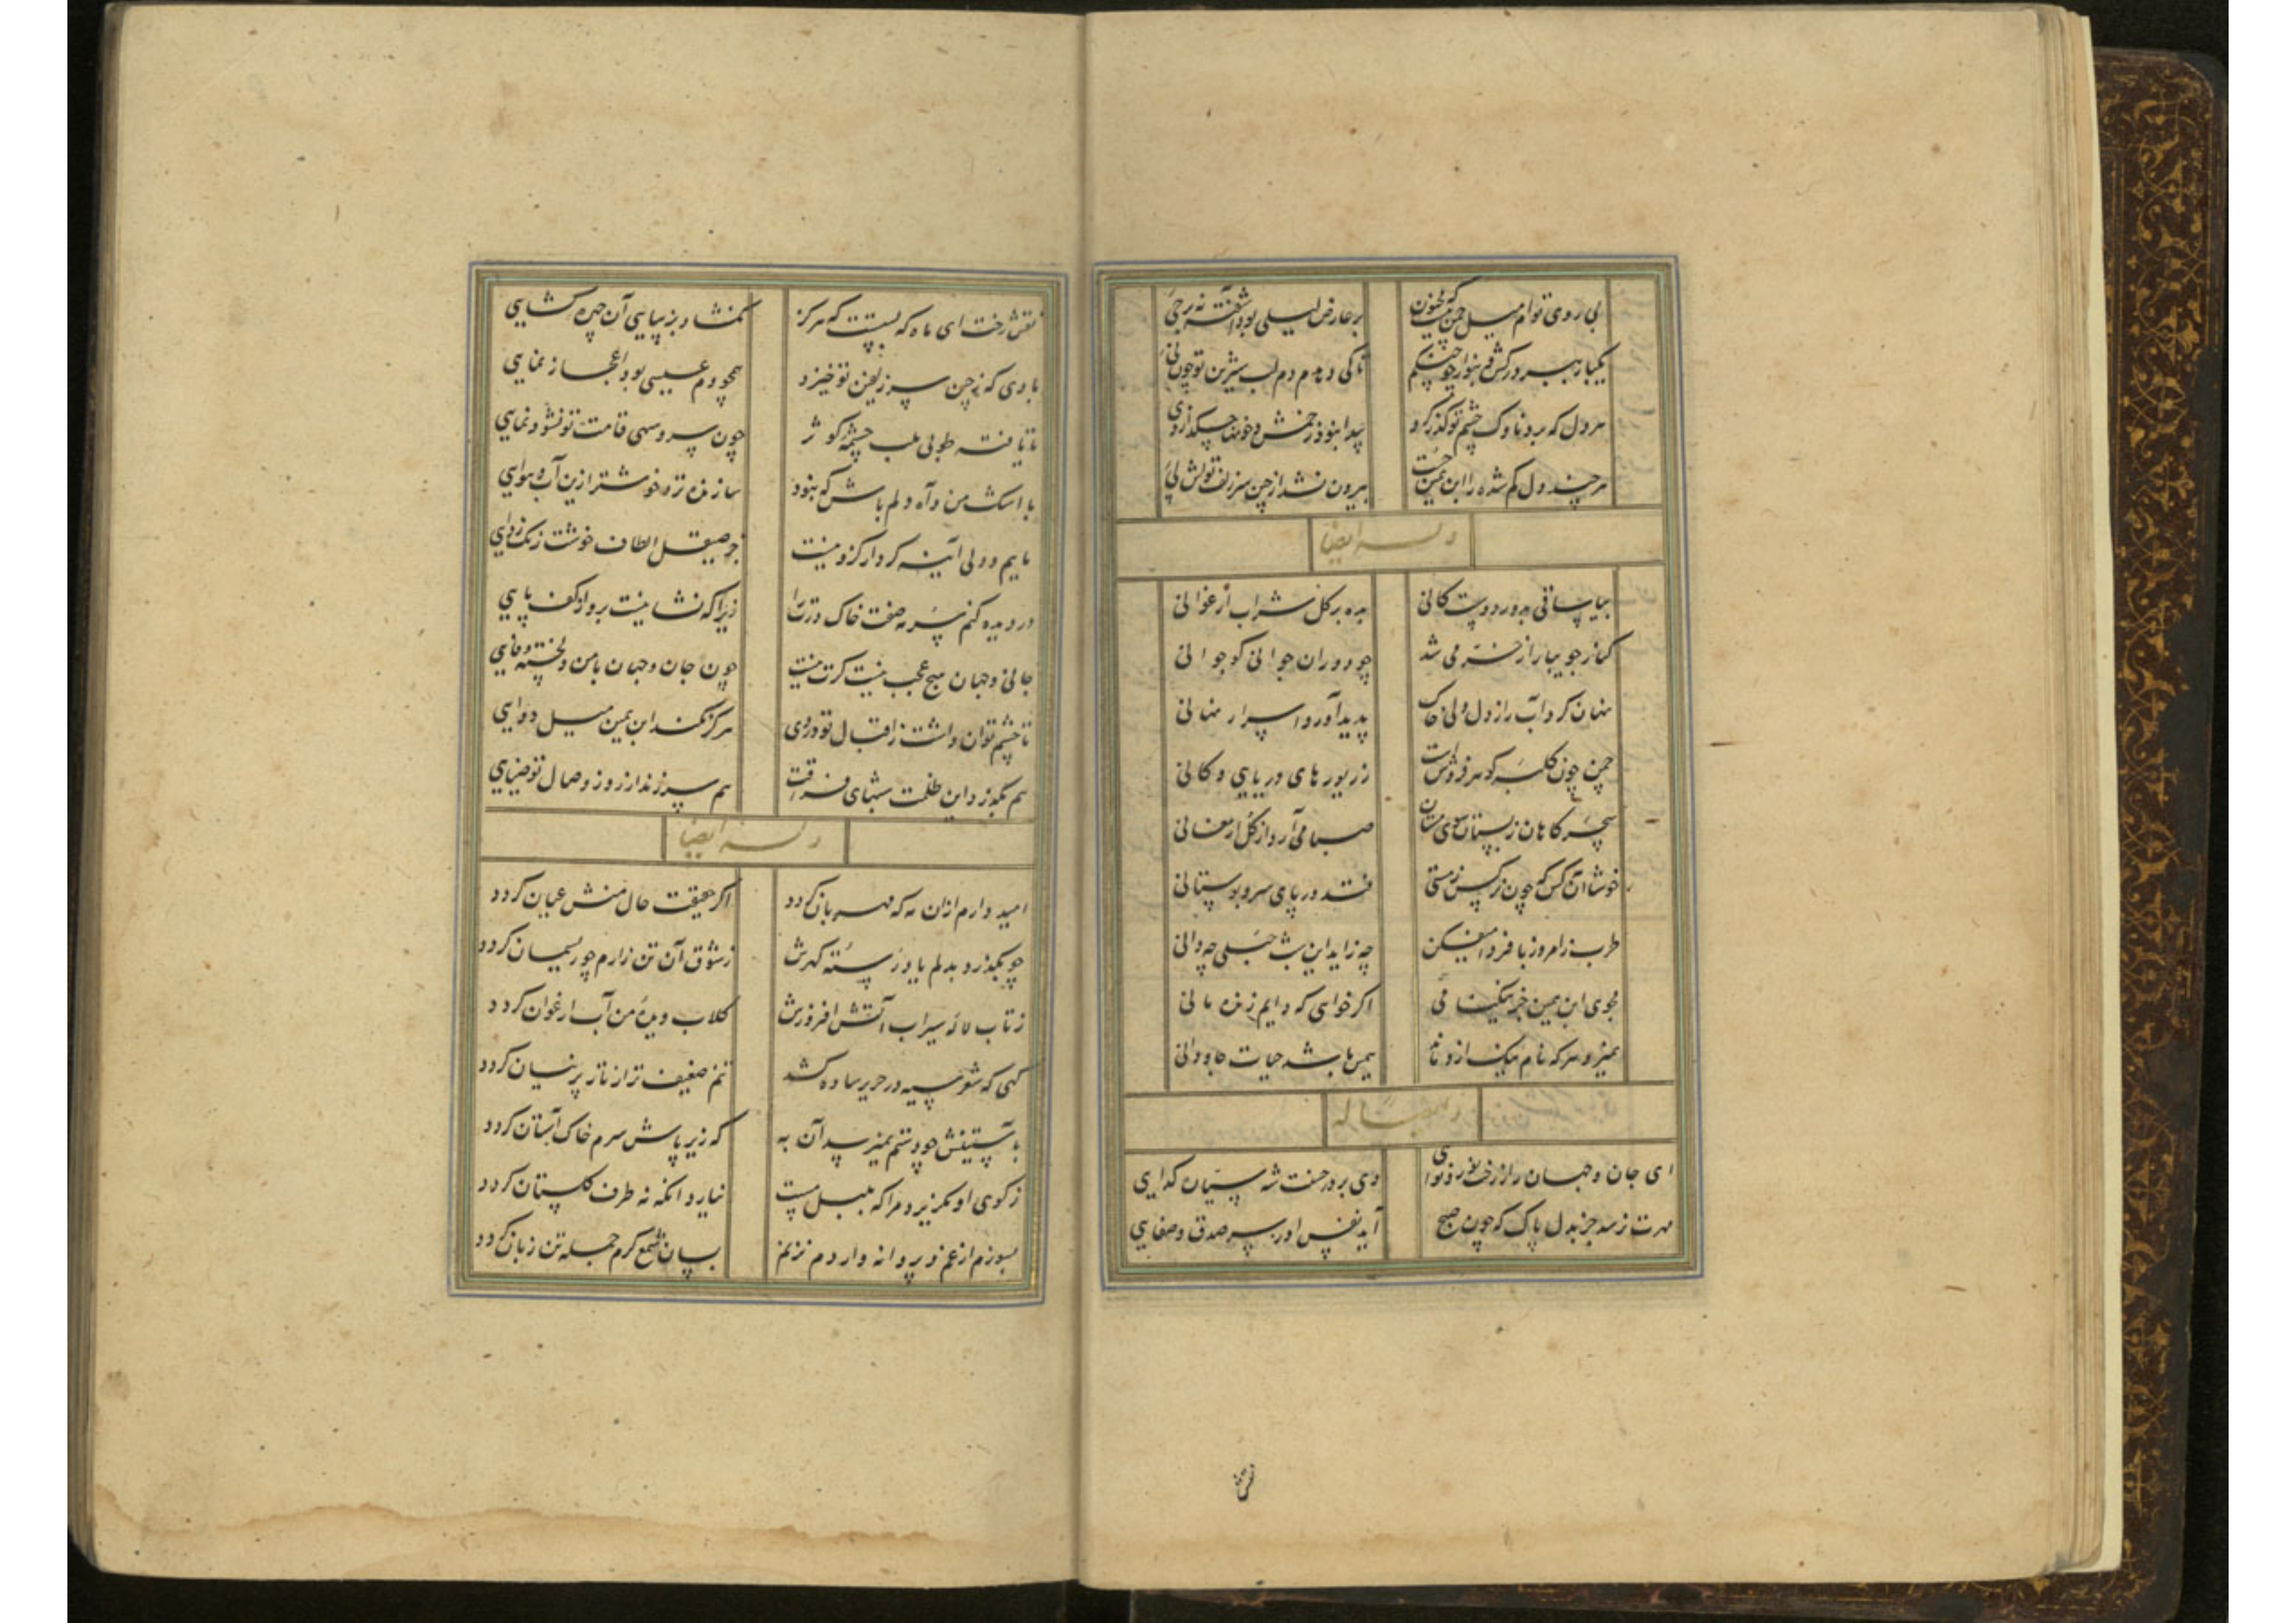 بی روی توام میل چمن نیست که مجنون بر عارض لیلی بود آشفته نه بر حی
یکبار بسر درکش و بنواز چو چنگم تا کی دهدم دم لب شیرین تو چون نی
هر دل که برو ناوک چشم تو گذر کرد پیدا نبود زخمش و خونها چکد از وی
هر چند دل گم شده را ابن یمین جست بیرون نشد از چین سر زلف تواش پی
وله ایضا
بیا ساقی بده بر گل شراب ارغوانی
کنار جویبار از سبزه می شد چو دوران جوانی کو جوانی
نهان کرد آب راز دل ولی خاک پدید آورد اسرار نهانی
چمن چون کلبه گوهر فروشست ز زیورهای دریایی و کانی
سحرگاهان ز بستان سوی مستان صبا می آرد از گل ارمغانی
خوشا آن کس که چون نرگس ز مستی فتد در پای سرو بوستانی
طرب ز امروز با فردا میفکن چه زاید این شب حبلی چه دانی
مجوی ابن یمین جز نیکنامی اگر خواهی که دایم زنده مانی
نمیرد هر که نام نیک ازو ماند همین باشد حیات جاودانی
ای جان و جهان را ز رخت نور و نوایی وی بر در حسنت شه سیتان گدایی
مهرت نرسد جز بدل پاک که چون صبح آید نفس او ز سر صدق و صفایی
نقش
نقش رخت ای ماه که بستست که هرگز نگشاد بزیبایی آن چهره گشایی
بادی که ز چین سر زلفین تو خیزد همچو دم عیسی بود اعجاز نمایی
نایافته طوبی بلب چشمه کوثر چون سرو سهی قامت تو نشو و نمایی
با اشک من و آه دلم باش که نبود سازنده تر و خوشتر ازین آب و هوایی
ماییم و دلی آینه کردار کزو نیست جز صیقل الطاف خوشت زنگ زدایی
در دیده کنم سرمه صفت خاک درت را زیرا که نشانیست برو از کف پایی
جانی و جهان هیچ عجب نیست گرت نیست چون جان و جهان با من دلخسته وفایی
تا چشم توان داشت ز اقبال تو دردی هرگز نکند ابن یمین میل دوایی
هم بگذرد این ظلمت شبهای فراقت هم سر زند از روز وصال تو ضیایی
وله ایضا
امید دارم ازان مه که مهربان گردد اگر حقیقت حال منش عیان گردد
چو بگذرد بدلم یاد رسته گهرش ز شوق آن تن زارم چو ریسمان گردد
ز تاب لاله سیراب آتش افروزش گلاب دیده من آب ارغوان گردد
گهی که شعر سیه در حریر ساده کشد تنم ضعیف تر از تار پرنیان گردد
بآستینش چو دستم نمیرسد آن به که زیر پاش سرم خاک آستان گردد
ز کوی او نگریزد مرا که بلبل مست نیارد آنکه نه طرف گلستان گردد
بسوزم از غم و پروانه وار دم نزنم بسان شمع گرم جمله تن زبان گردد